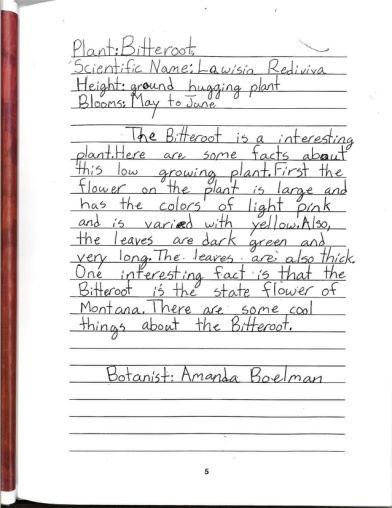 Plant: Bitteroot
Scientific Name: Lawisia Rediviva
Height: ground hugging plant
Blooms: May to June
The Bitteroot is a interesting
plant. Here are some facts about
this low growing plant. First the
flower on the plant is large and
has the colors of light pink
and is varied with yellow. Also,
the leaves are dark green and
very long. The leaves are also thick.
One interesting fact is that the
Bitteroot is the state flower of
Montana. There are some cool
things about the Bitteroot.
Botanist: Amanda Boelman
5